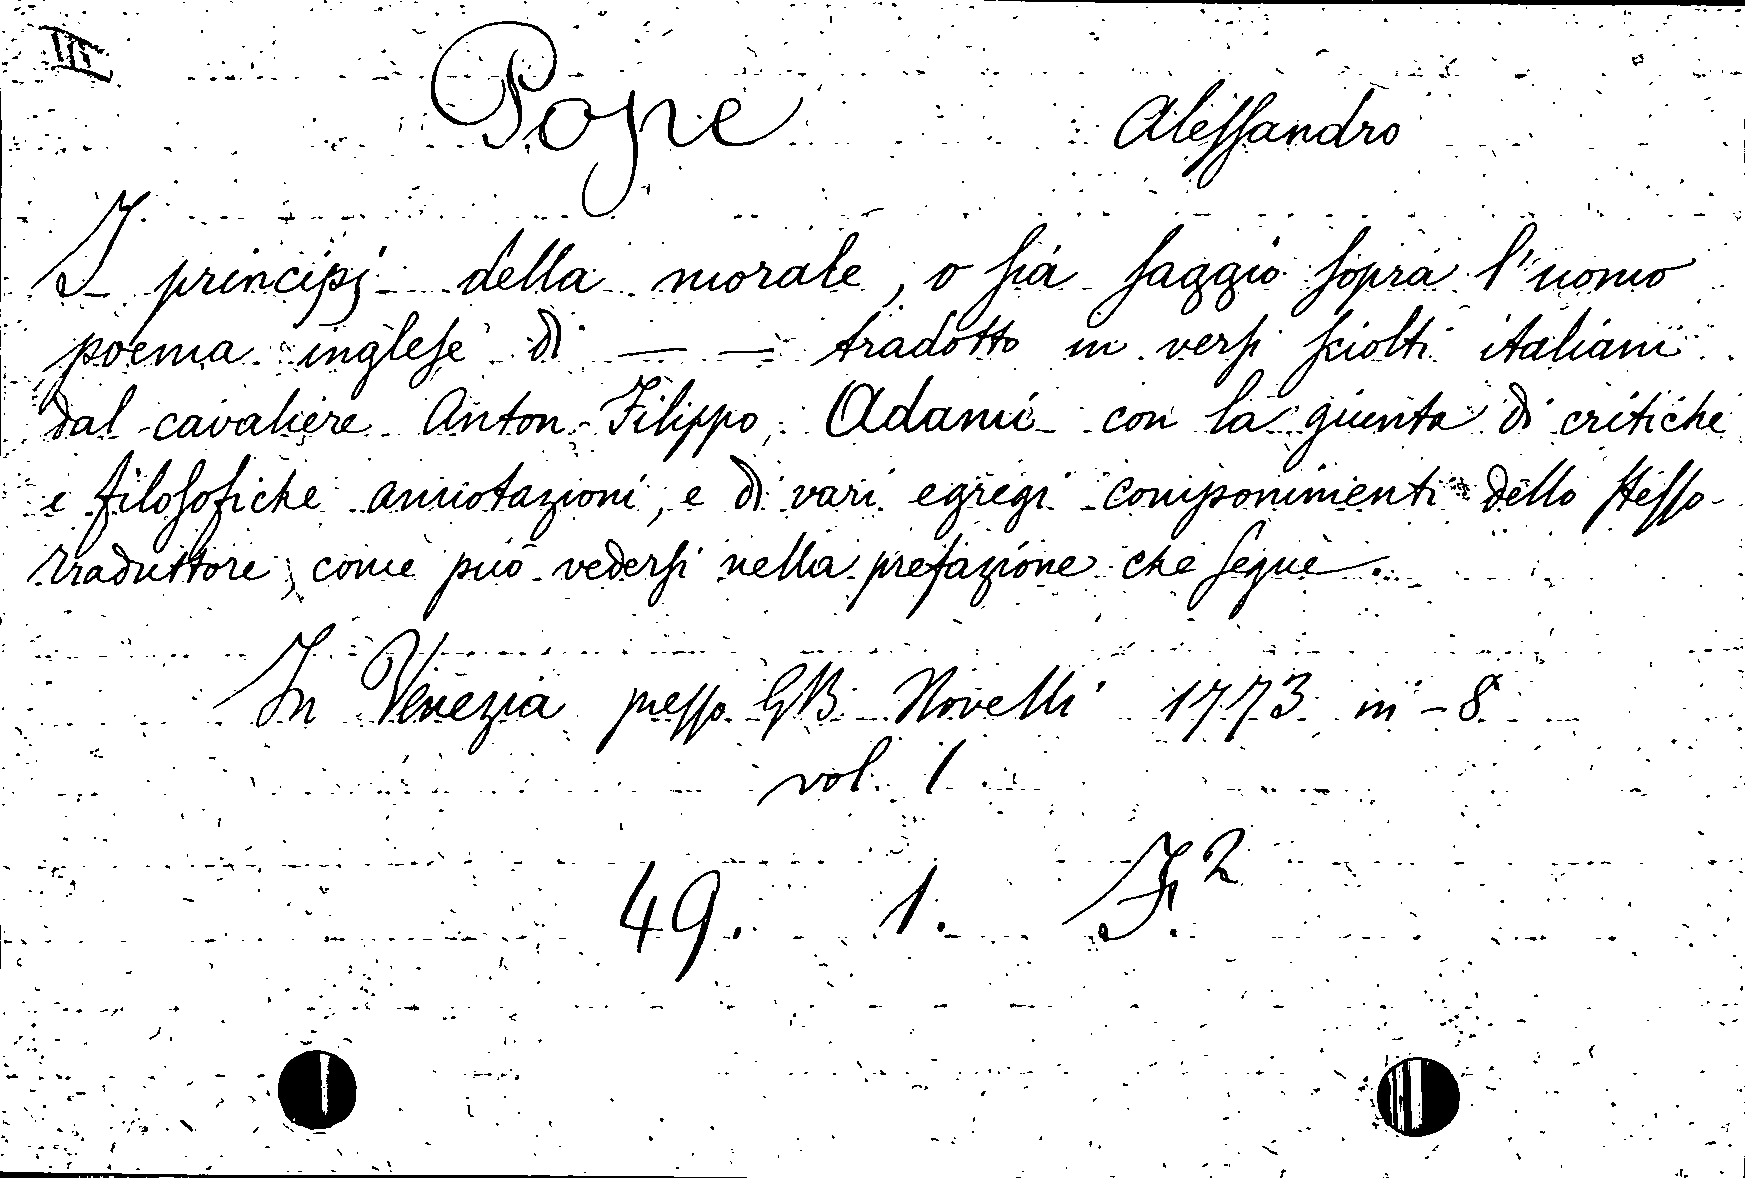 III
Pope Alessandro
I principj della morale, o sia saggio sopra l'uomo
poema inglese di — — tradotto in versi sciolti italiani
dal cavaliere Anton-Filippo, Adami con la giunta di critiche
e filosofiche annotazioni, e di vari egregi componimenti dello stesso
traduttore, come può vedersi nella prefazione che segue.
In Venezia presso GB Novelli 1773 in-8
vol. 1
49. 1. F.2